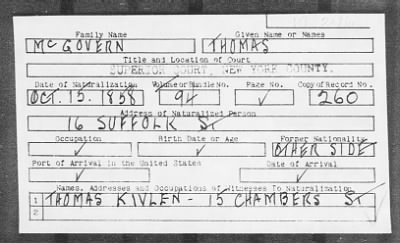 Family Name Given Name or Names
McGOVERN THOMAS
Title and Location of Court
SUPERIOR COURT, NEW YORK COUNTY.
Date of Naturalization Volume or Bundle No. Page No. Copy of Record No.
OCT. 15. 1858 94 ✓ 260
Address of Naturalized Person
16 SUFFOLK ST
Occupation Birth Date or Age Former Nationality
✓ ✓ OTHER SIDE
Port of Arrival in the United States Date of Arrival
✓ ✓
Names, Addresses and Occupations of Witnesses To Naturalization
1 THOMAS KIVLEN - 15 CHAMBERS ST
2